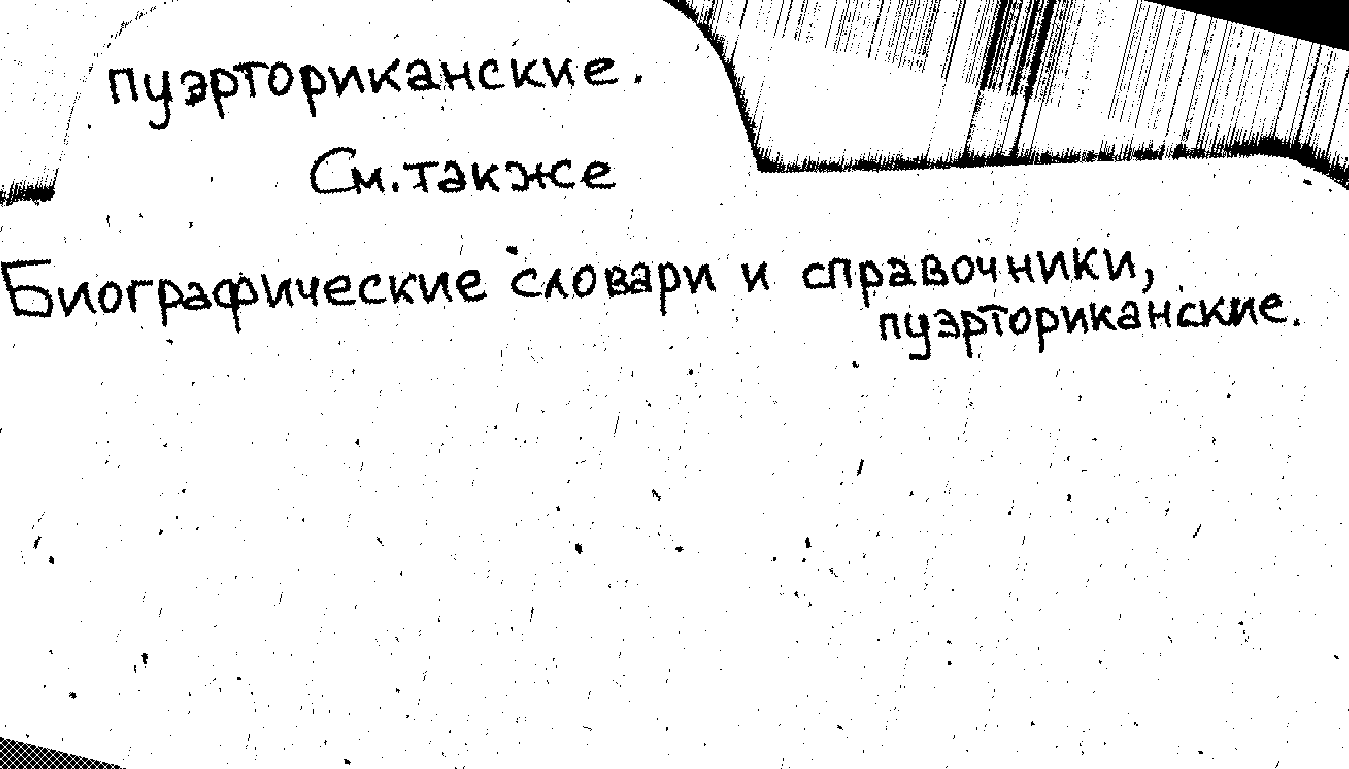 пуэрториканские.
См. также
Биографические словари и справочники,
пуэрториканские.